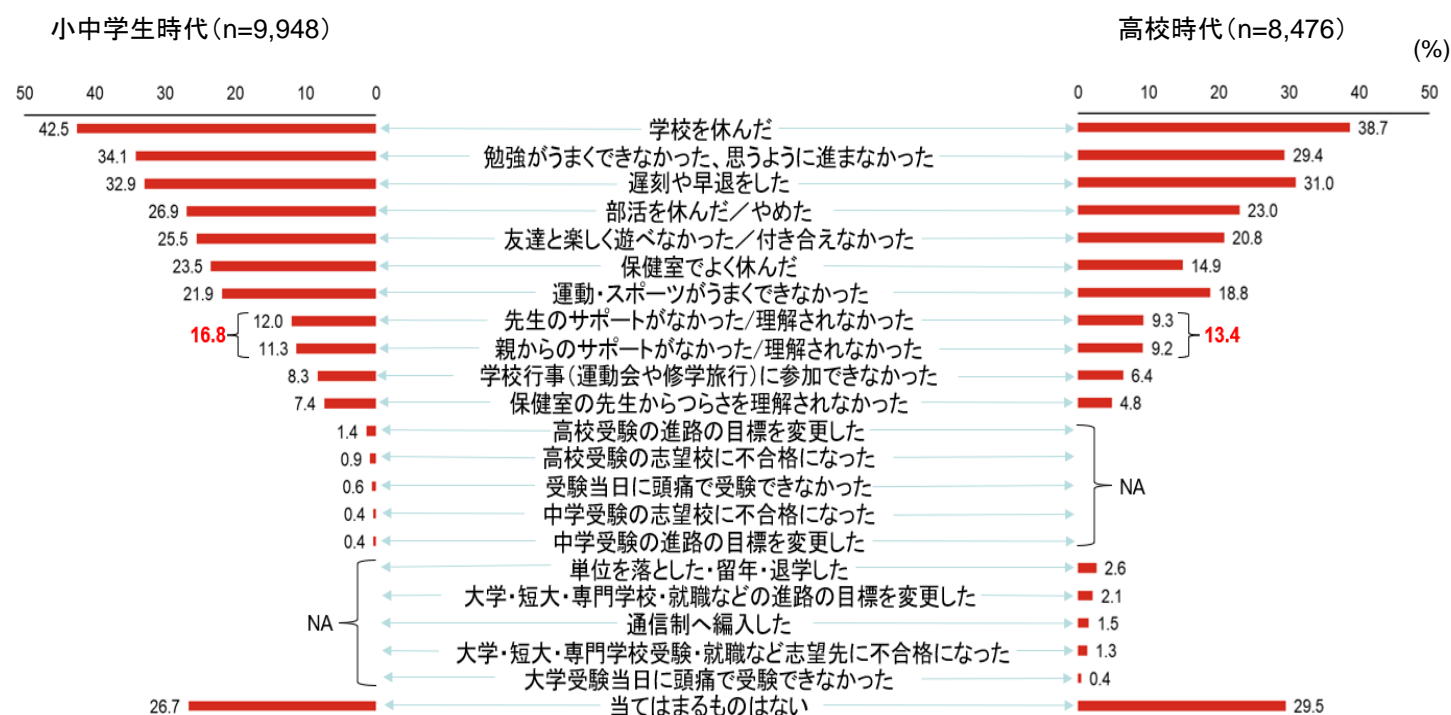 小中学生時代（n=9,948）
高校時代（n=8,476）
(%)
50 40 30 20 10 0
0 10 20 30 40 50
42.5 学校を休んだ 38.7
34.1 勉強がうまくできなかった、思うように進まなかった 29.4
32.9 遅刻や早退をした 31.0
26.9 部活を休んだ／やめた 23.0
25.5 友達と楽しく遊べなかった／付き合えなかった 20.8
23.5 保健室でよく休んだ 14.9
21.9 運動・スポーツがうまくできなかった 18.8
12.0 先生のサポートがなかった/理解されなかった 9.3
16.8 13.4
11.3 親からのサポートがなかった/理解されなかった 9.2
8.3 学校行事（運動会や修学旅行）に参加できなかった 6.4
7.4 保健室の先生からつらさを理解されなかった 4.8
1.4 高校受験の進路の目標を変更した
0.9 高校受験の志望校に不合格になった
0.6 受験当日に頭痛で受験できなかった NA
0.4 中学受験の志望校に不合格になった
0.4 中学受験の進路の目標を変更した
単位を落とした・留年・退学した 2.6
大学・短大・専門学校・就職などの進路の目標を変更した 2.1
NA 通信制へ編入した 1.5
大学・短大・専門学校受験・就職など志望先に不合格になった 1.3
大学受験当日に頭痛で受験できなかった 0.4
26.7 当てはまるものはない 29.5